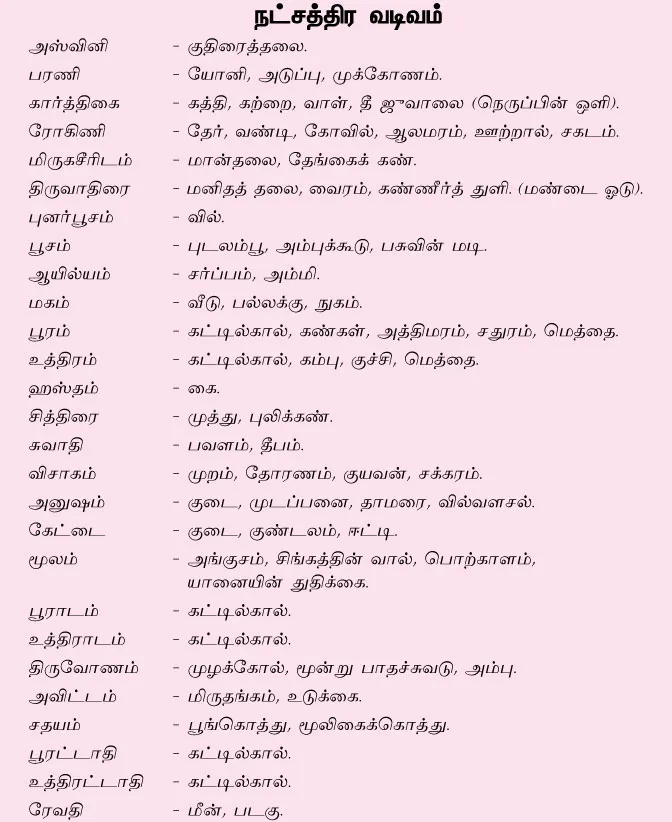 நட்சத்திர வடிவம்
அஸ்வினி - குதிரைத்தலை.
பரணி - யோனி, அடுப்பு, முக்கோணம்.
கார்த்திகை - கத்தி, கற்றை, வாள், தீ ஜுவாலை (நெருப்பின் ஒளி).
ரோகிணி - தேர், வண்டி, கோவில், ஆலமரம், ஊற்றால், சகடம்.
மிருகசீரிடம் - மான்தலை, தேங்கைக் கண்.
திருவாதிரை - மனிதத் தலை, வைரம், கண்ணீர்த் துளி. (மண்டை ஓடு).
புனர்பூசம் - வில்.
பூசம் - புடலம்பூ, அம்புக்கூடு, பசுவின் மடி.
ஆயில்யம் - சர்ப்பம், அம்மி.
மகம் - வீடு, பல்லக்கு, நுகம்.
பூரம் - கட்டில்கால், கண்கள், அத்திமரம், சதுரம், மெத்தை.
உத்திரம் - கட்டில்கால், கம்பு, குச்சி, மெத்தை.
ஹஸ்தம் - கை.
சித்திரை - முத்து, புலிக்கண்.
சுவாதி - பவளம், தீபம்.
விசாகம் - முறம், தோரணம், குயவன், சக்கரம்.
அனுஷம் - குடை, முடப்பனை, தாமரை, வில்வளசல்.
கேட்டை - குடை, குண்டலம், ஈட்டி.
மூலம் - அங்குசம், சிங்கத்தின் வால், பொற்காளம்,
யானையின் துதிக்கை.
பூராடம் - கட்டில்கால்.
உத்திராடம் - கட்டில்கால்.
திருவோணம் - முழக்கோல், மூன்று பாதச்சுவடு, அம்பு.
அவிட்டம் - மிருதங்கம், உடுக்கை.
சதயம் - பூங்கொத்து, மூலிகைக்கொத்து.
பூரட்டாதி - கட்டில்கால்.
உத்திரட்டாதி - கட்டில்கால்.
ரேவதி - மீன், படகு.